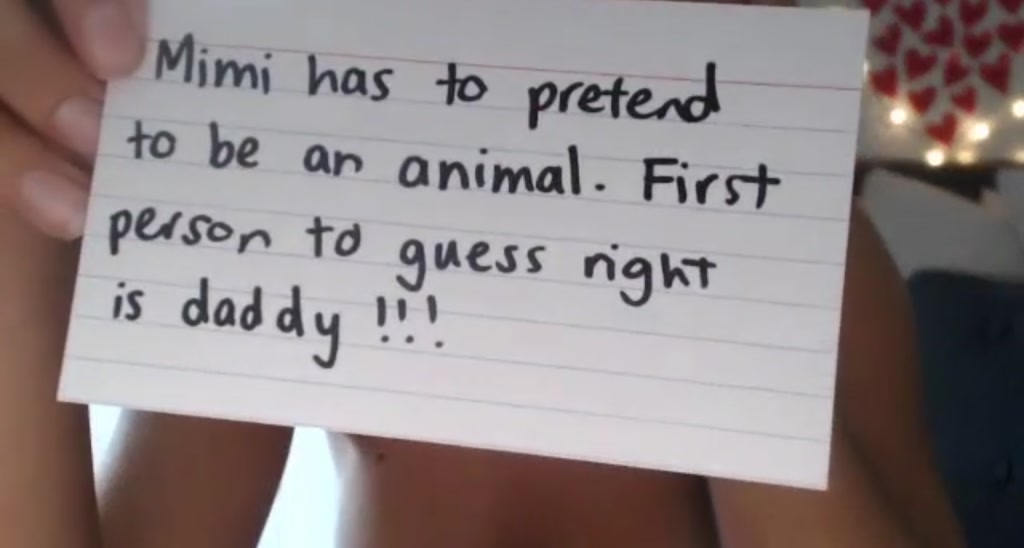 Mimi has to pretend
to be an animal. First
person to guess right
is daddy !!!